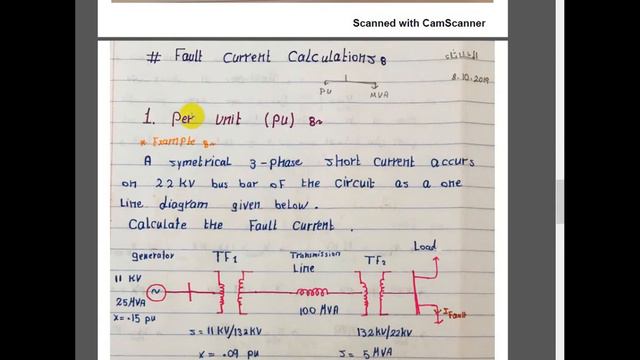 Scanned with CamScanner
# Fault Current Calculations
الثلاثاء
8.10.2019
PU
MVA
1. Per unit (PU)
* Example
A symetrical 3-phase short current accurs
on 22 KV bus bar of the circuit as a one
Line diagram given below.
Calculate the Fault Current.
generator
TF1
Transmission
Line
TF2
Load
11 KV
25 MVA
X = .15 pu
100 MVA
I Fault
S = 11 KV/132 KV
132 KV/22 KV
X = .09 pu
S = 5 MVA